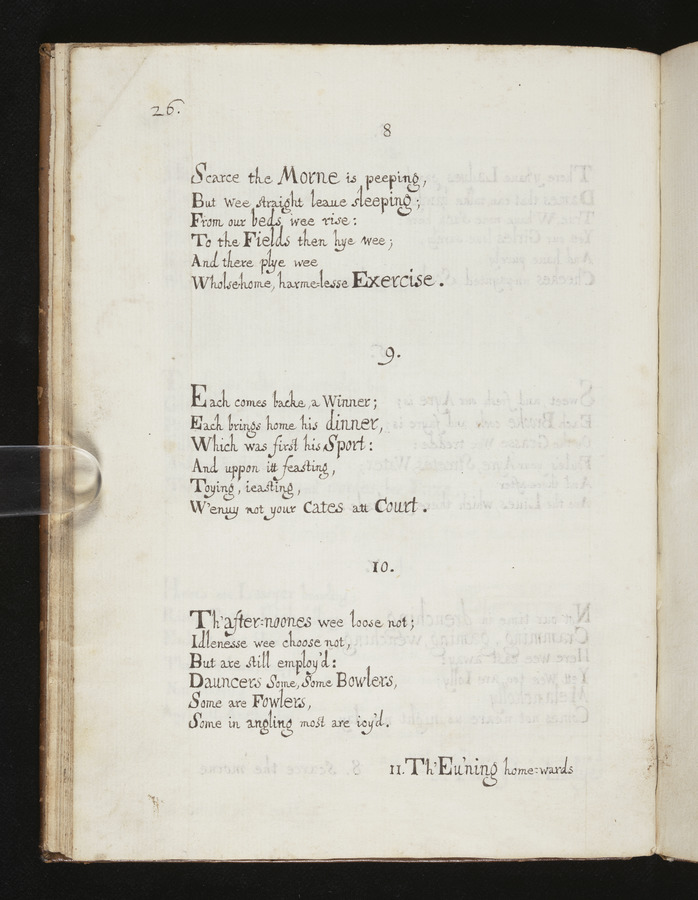 26.
8
Scarce the Morne is peeping,
But wee straight leaue sleeping;
From our beds wee rise:
To the Fields then hye wee;
And there plye wee
Wholse-home, harme-lesse Exercise.
9.
Each comes backe, a Winner;
Each brings home his dinner,
Which was first his Sport:
And uppon itt feasting,
Toying, ieasting,
W'enuy not your Cates att Court.
10.
Th'after=noones wee loose not;
Idlenesse wee choose not,
But are still employ'd:
Dauncers Some, Some Bowlers,
Some are Fowlers,
Some in angling most are ioy'd.
11. Th'Eu'ning home=wards